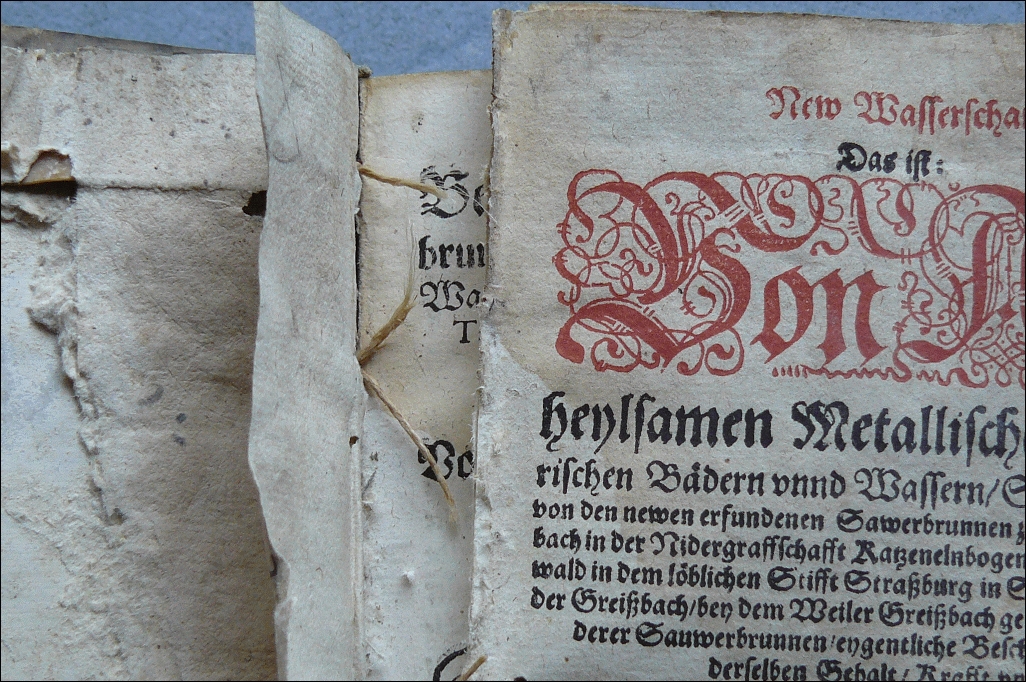 New Wasserscha
Das ist:
Von
heylsamen Metallisch
rischen Bädern vnnd Wassern/
von den newen erfundenen Sawerbrunnen
bach in der Nidergraffschafft Katzenelnbogen
wald in dem löblichen Stifft Straßburg in
der Greißbach/bey dem Weiler Greißbach ge
derer Sauwerbrunnen/eygentliche Besch
derselben Gehalt/ Krafft vn
brun
Wa
T
Vo